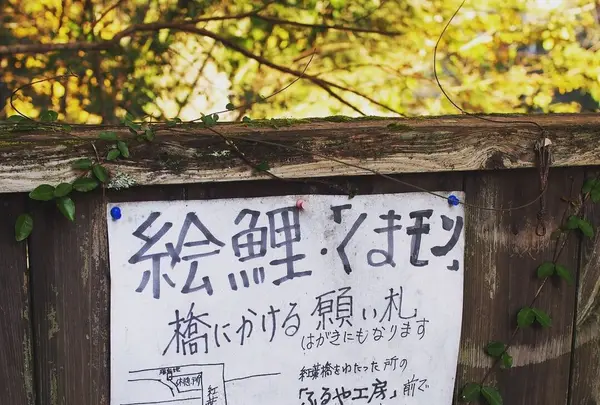 絵鯉・「くまモン」
橋にかける願い札
はがきにもなります
紅葉橋をわたった所の
「ふるや工房」前で
休憩所
紅葉